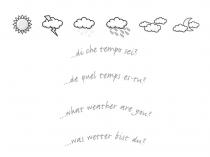 ...di che tempo sei?
...de quel temps es-tu?
...what weather are you?
...was wetter bist du?